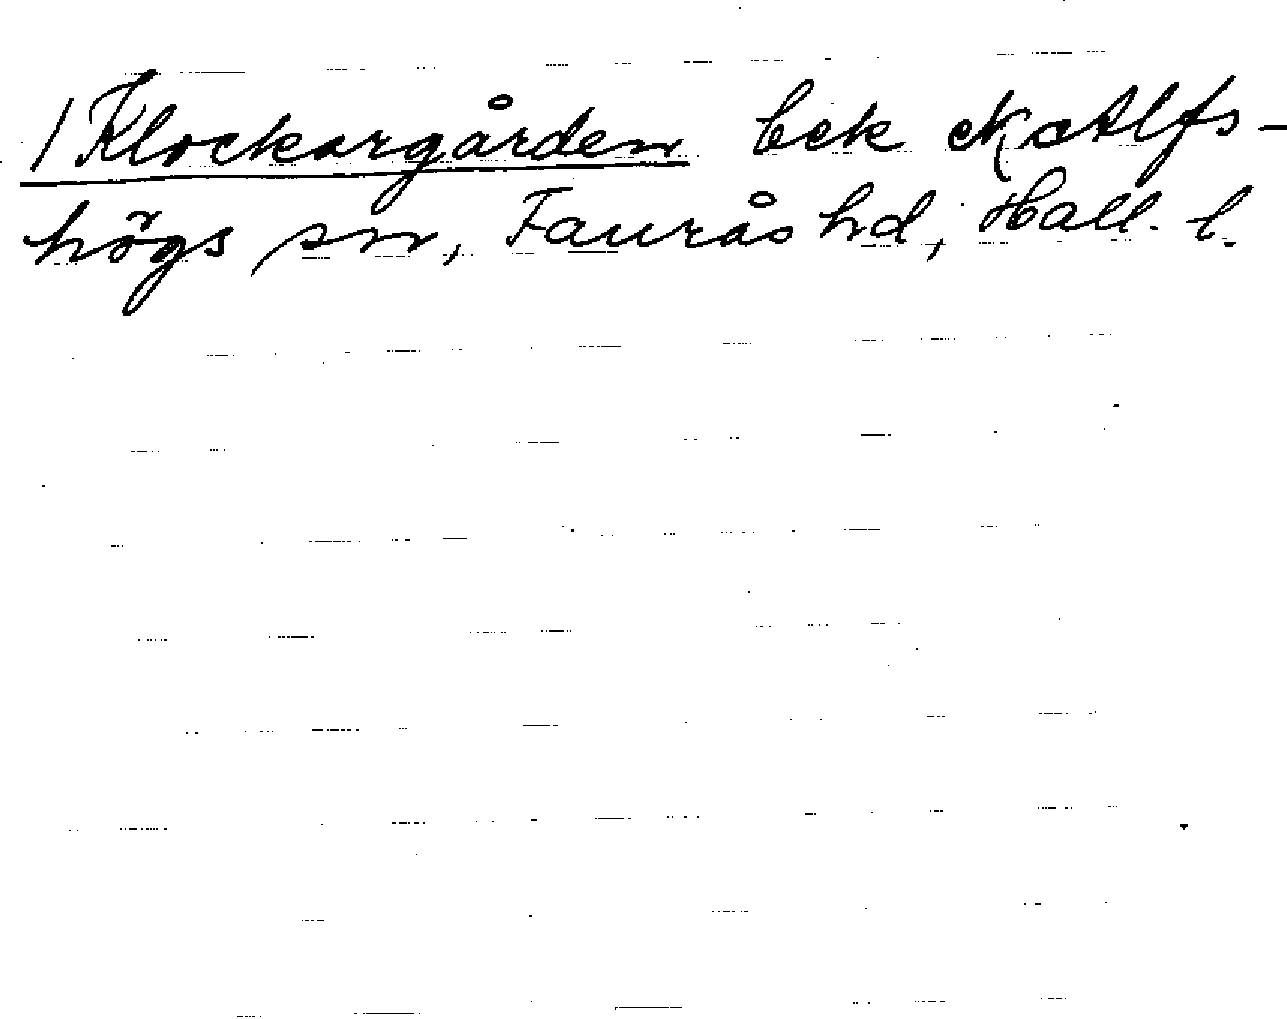 / Klockargården bek Alfs-
högs sn, Faurås hd, Hall. l.